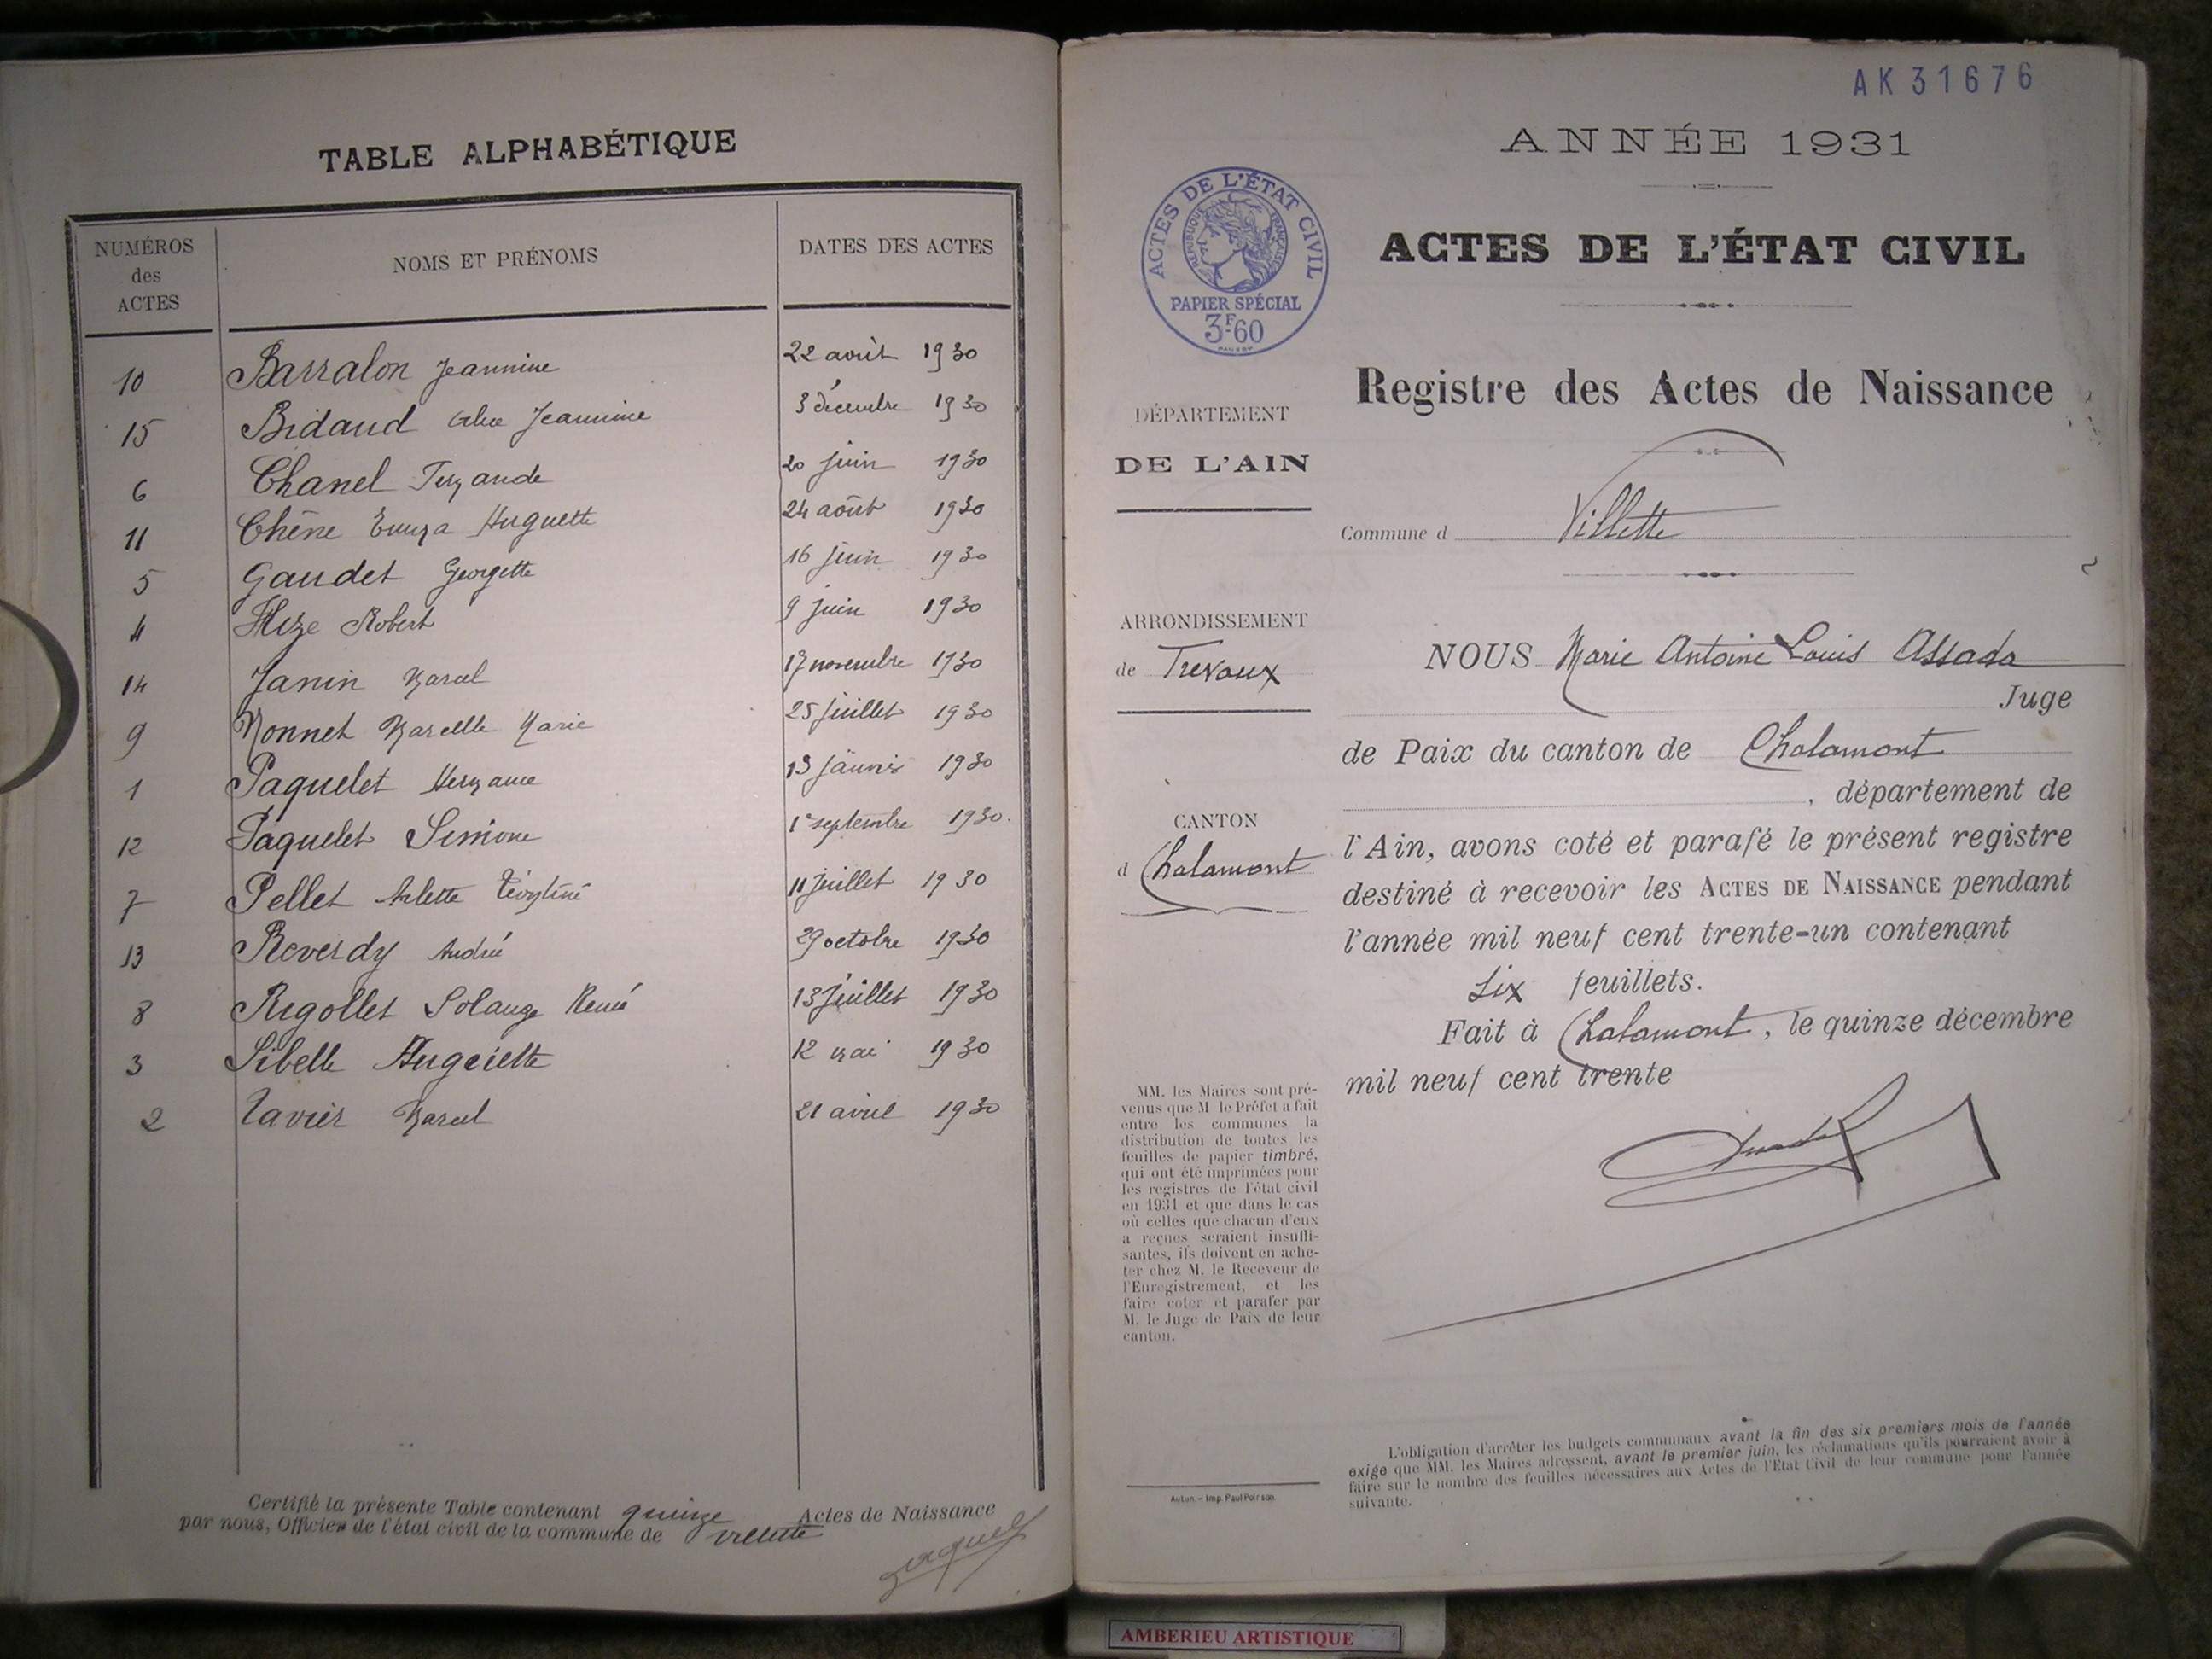 TABLE ALPHABÉTIQUE
NUMÉROS des ACTES
NOMS ET PRÉNOMS
DATES DES ACTES
10 Barralon Jeannine 22 août 1930
15 Bidaud Jeannine 3 décembre 1930
6 Chanel 20 juin 1930
11 Chêne Huguette 24 août 1930
5 Gaudet Georgette 16 juin 1930
4 Robert 9 juin 1930
14 Janin Marcel 17 novembre 1930
9 Monnet Marcelle Marie 25 juillet 1930
1 Paquelet 13 1930
12 Paquelet Simone 1er septembre 1930.
7 Pellet Arlette 11 juillet 1930
13 Reverdy André 29 octobre 1930
8 Rigollet Solange René 13 juillet 1930
3 Sibelle 12 mai 1930
2 Marcel 21 avril 1930
Certifié la présente Table contenant quinze Actes de Naissance
par nous, Officier de l'état civil de la commune de Villette
AK31676
ANNÉE 1931
ACTES DE L'ÉTAT CIVIL
RÉPUBLIQUE FRANÇAISE
PAPIER SPÉCIAL
3F60
ACTES DE L'ÉTAT CIVIL
Registre des Actes de Naissance
DÉPARTEMENT
DE L'AIN
Commune d Villette
ARRONDISSEMENT
de Trevoux
CANTON
d Chalamont
NOUS Marie Antoine Louis Assada
Juge
de Paix du canton de Chalamont
, département de
l'Ain, avons coté et parafé le présent registre
destiné à recevoir les ACTES DE NAISSANCE pendant
l'année mil neuf cent trente-un contenant
six feuillets.
Fait à Chalamont, le quinze décembre
mil neuf cent trente
MM. les Maires sont pré-
venus que M le Préfet a fait
entre les communes la
distribution de toutes les
feuilles de papier timbré,
qui ont été imprimées pour
les registres de l'état civil
en 1931 et que dans le cas
où celles que chacun d'eux
a reçues seraient insuffi-
santes, ils doivent en ache-
ter chez M. le Receveur de
l'Enregistrement, et les
faire coter et parafer par
M. le Juge de Paix de leur
canton.
Autun. — Imp. Paul Poirson
L'obligation d'arrêter les budgets communaux avant la fin des six premiers mois de l'année
exige que MM. les Maires adressent, avant le premier juin, les réclamations qu'ils pourraient avoir à
faire sur le nombre des feuilles nécessaires aux Actes de l'État Civil de leur commune pour l'année
suivante.
AMBERIEU ARTISTIQUE